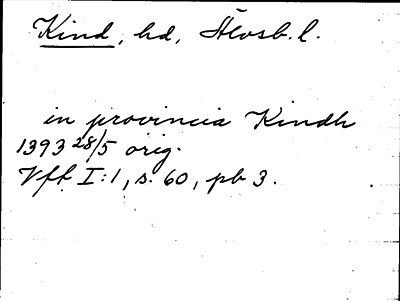 Kind, hd, Älvsb. l.
in provincia Kindh
1393 28/5 orig.
Vfh I:1, s. 60, pb 3.